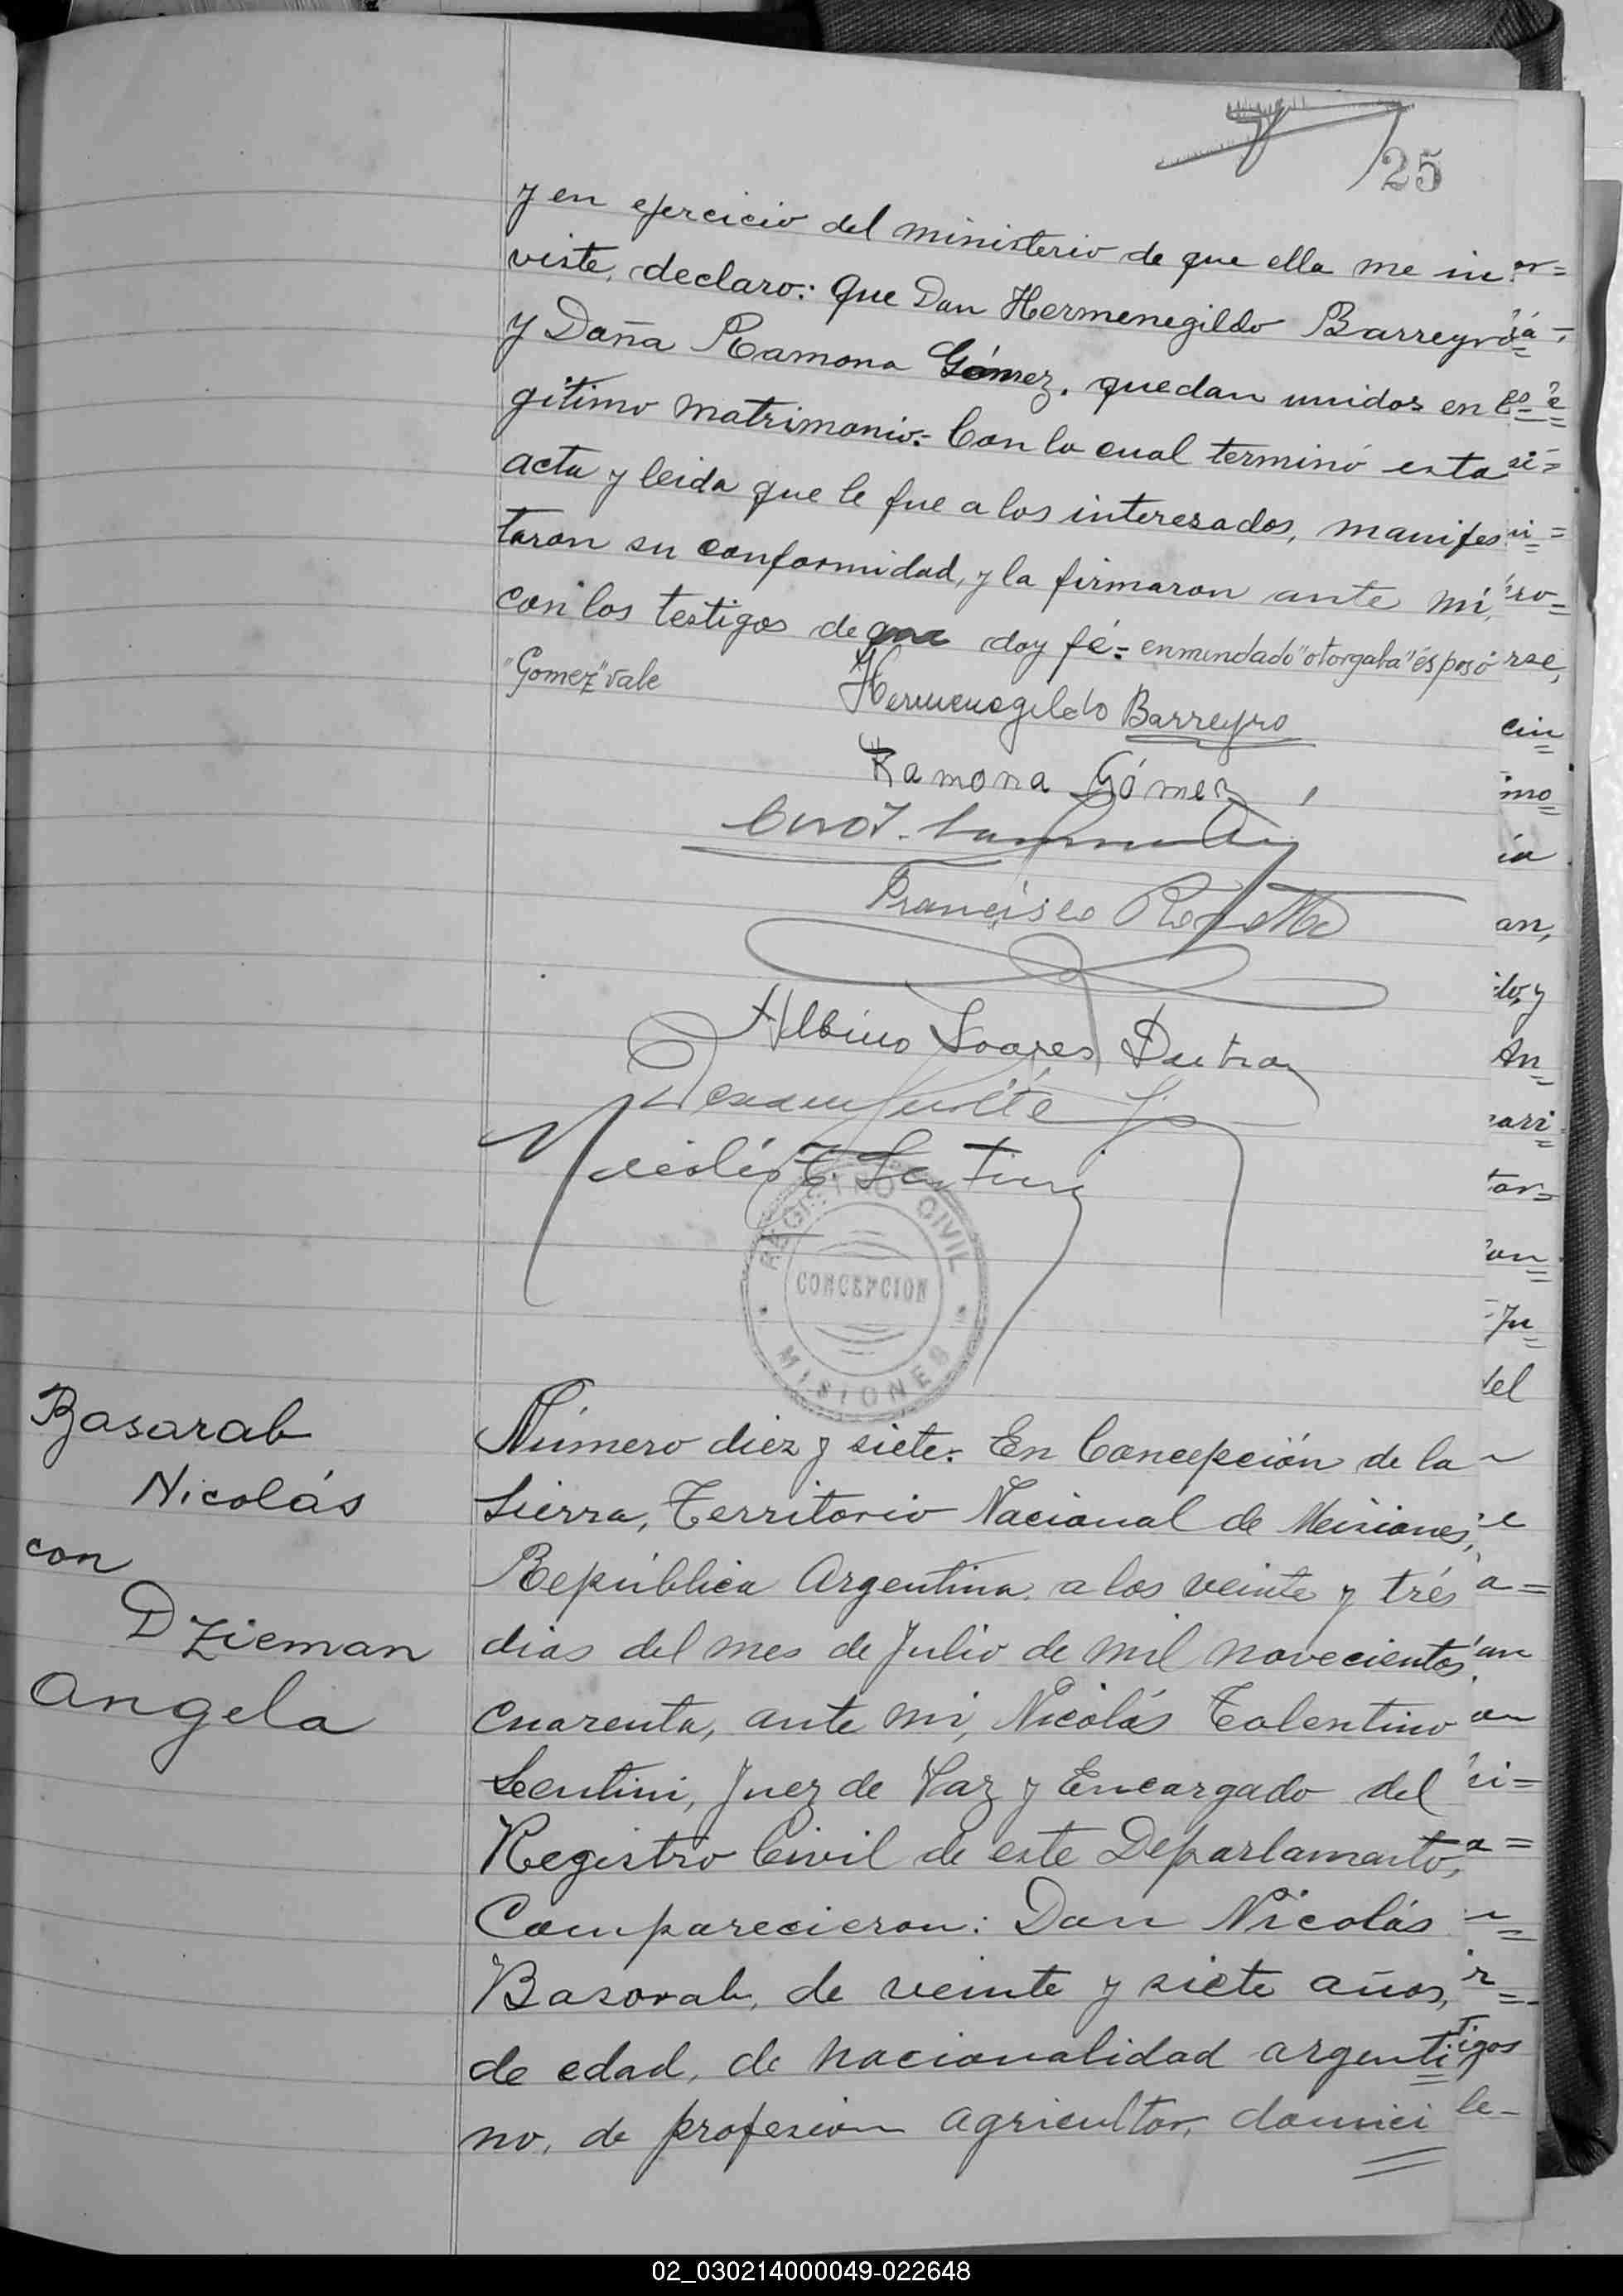 25
y en ejercicio del ministerio de que ella me in
viste, declaro: Que Don Hermenegildo Barreyro
y Doña Ramona Gómez, quedan unidos en le
gitimo matrimonio.- Con lo cual terminó esta
acta y leida que le fue a los interesados, manifes
taron su conformidad, y la firmaron ante mí,
con los testigos de que doy fé.= enmendado "otorgaba" "esposo
"Gomez" vale
Hermenegildo Barreyro
Ramona Gómez
Francisco
Albino Soares Dutra
REGISTRO CIVIL
CONCEPCION
MISIONES
Basarab
Nicolás
con
Dzieman
Angela
Número diez y siete.= En Concepción de la
Sierra, Territorio Nacional de Misiones,
República Argentina, a los veinte y trés
dias del mes de Julio de mil novecientos
cuarenta, ante mi, Nicolás Tolentino
Lentini, Juez de Paz y Encargado del
Registro Civil de este Departamento,
Comparecieron: Don Nicolás
Basarab, de veinte y siete años,
de edad, de nacionalidad argenti
no, de profesion agricultor, domici
02_030214000049-022648